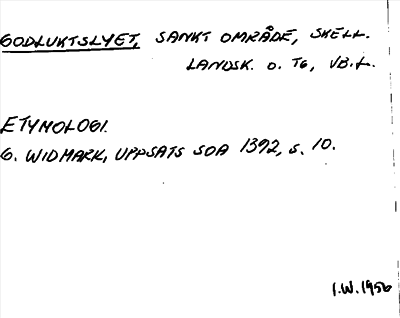 GODLUKTSLYET, SANKT OMRÅDE, SKELL.
LANDSK. O. TG, VB. L.
ETYMOLOGI.
G. WIDMARK, UPPSATS SOA 1392, S. 10.
I.W. 1956